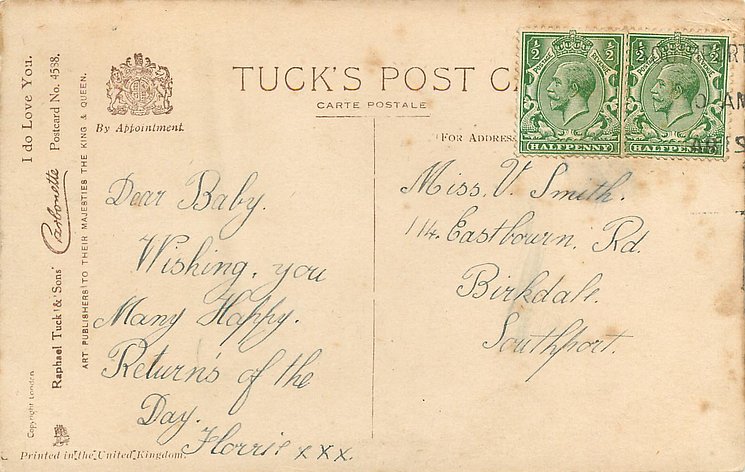 I do Love You.
Raphael Tuck & Sons' Carbonette Postcard No. 4538.
ART PUBLISHERS TO THEIR MAJESTIES THE KING & QUEEN.
Copyright London
By Appointment.
TUCK'S POST
CARTE POSTALE
Dear Baby.
Wishing. you
Many Happy.
Return's of the
Day.
Florrie xxx.
Printed in the United Kingdom.
(FOR ADDRESS
½ ½
POSTAGE REVENUE
HALFPENNY
½ ½
POSTAGE REVENUE
HALFPENNY
AM
Miss. V. Smith.
114. Eastbourn. Rd.
Birkdale.
Southport.